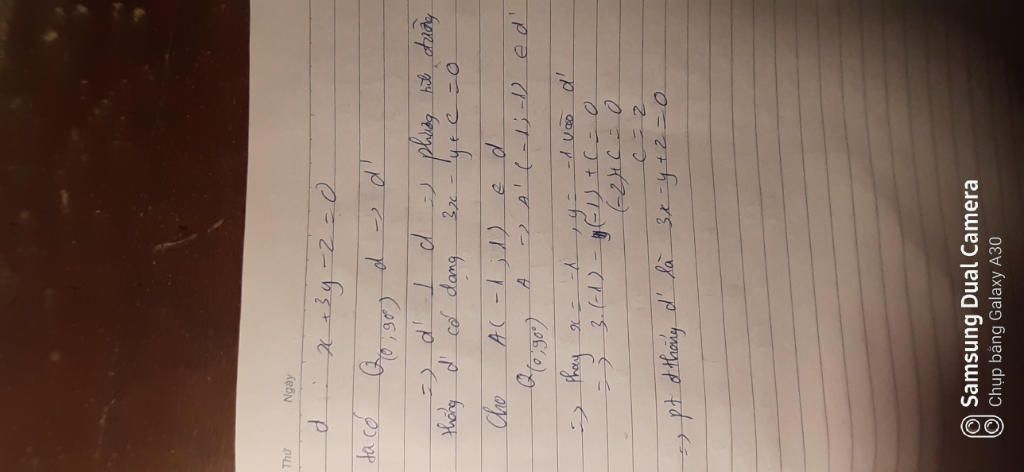 Thứ Ngày
d : x + 3y - 2 = 0
ta có Q(0; 90°) d -> d'
=> d' ⊥ d => phương trình đường
thẳng d' có dạng 3x - y + c = 0
Cho A(-1; 1) ∈ d
Q(0; 90°) A -> A' (-1; -1) ∈ d'
=> thay x = -1, y = -1 vào d'
=> 3.(-1) - (-1) + c = 0
(-2) + c = 0
c = 2
=> pt đ thẳng d' là 3x - y + 2 = 0
Samsung Dual Camera
Chụp bằng Galaxy A30